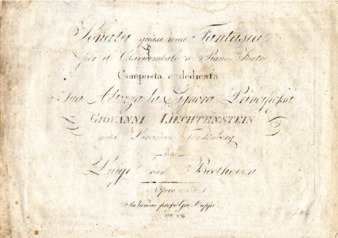 Sonata quasi una Fantasia
per il Clavicembalo o Piano-Forte
Composta e dedicata
a Sua Altezza la Signora Principessa
GIOVANNI LIECHTENSTEIN
nata
Luigi van Beethoven
Opera
In Vienna presso Gio. Cappi